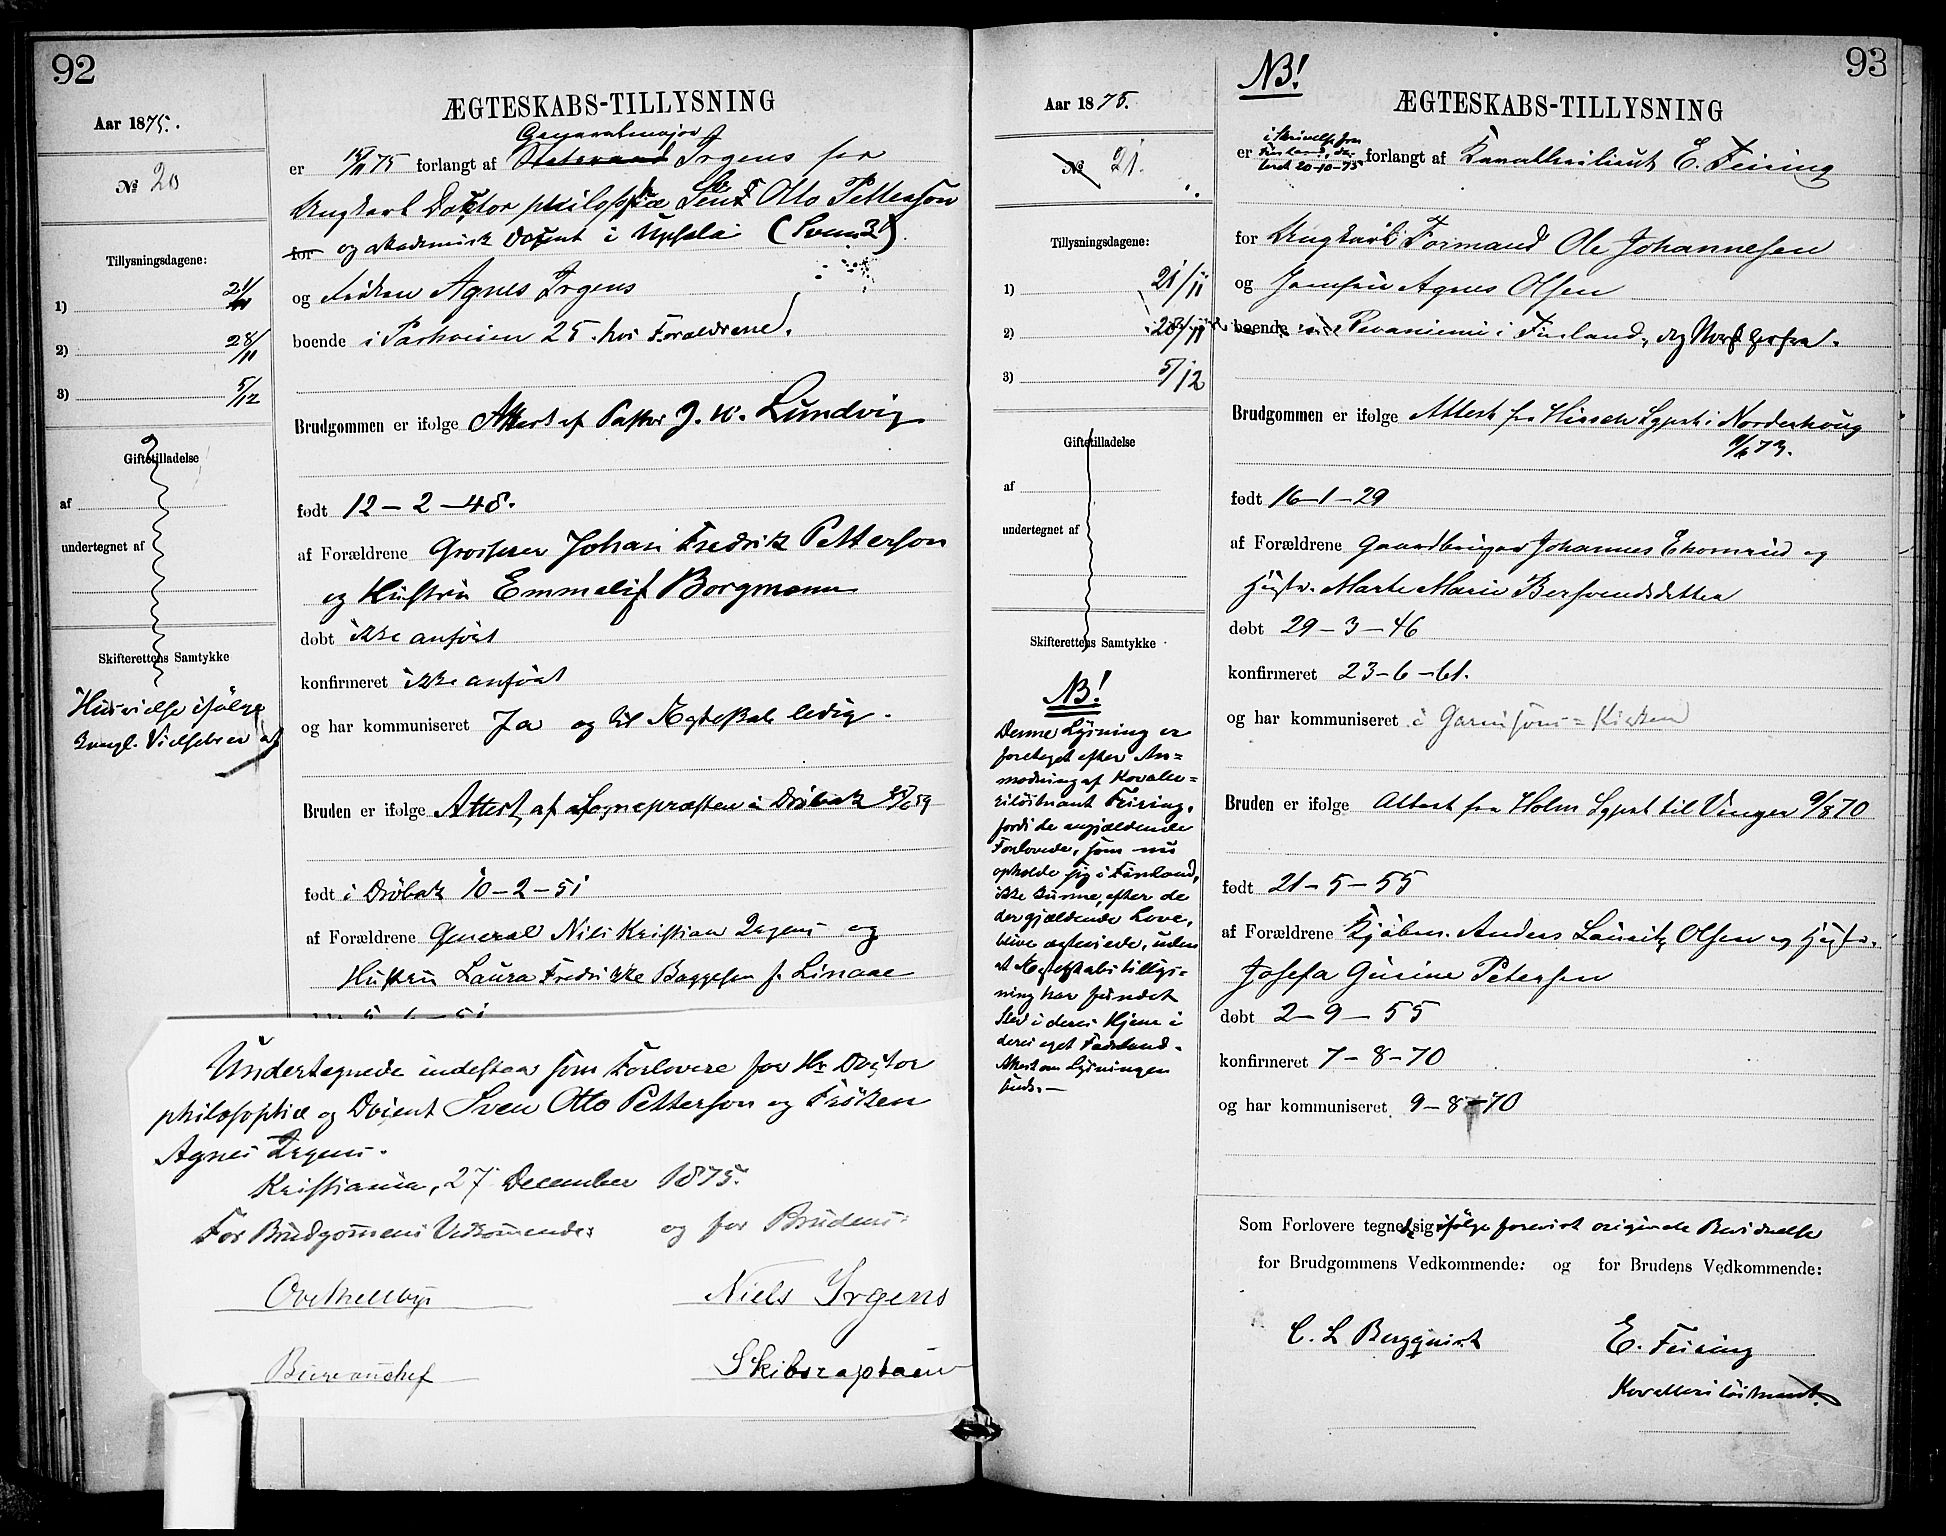 92
Aar 1875.
№ 20
Tillysningsdagene:
1) 21/11
2) 28/11
3) 5/12
Giftetilladelse
af
undertegnet af
Skifterettens Samtykke
Husvielse ifølge
Kongl. Vielsebrev af
ÆGTESKABS-TILLYSNING
Generalmajor
er /11 75 forlangt af Irgens for
Ungkarl Doctor philosophiæ Otto Petterson
for og akademisk Docent i Upsala (Svensk)
og Frøken Agnes Irgens
boende i Parkveien 25. hos Forældrene.
Brudgommen er ifølge Attest af Pastor J. W. Lundvig
født 12-2-48.
af Forældrene Grosserer Johan Fredrik Petterson
og Hustru Emmelie Borgmann
døbt ikke anført
konfirmeret ikke anført
og har kommuniseret Ja og til Ægteskab ledig.
Bruden er ifølge Attest af Sognepræsten i Drøbak
født i Drøbak 10-2-51
af Forældrene General Nils Kristian Irgens og
Hustru Laura Fredrikke Baggesen f. Linaae
Undertegnede indestaar som Forlovere for Hr Doctor
philosophiæ og Docent Sven Otto Petterson og Frøken
Agnes Irgens.
Kristiania, 27 December 1875.
For Brudgommens Vedkommende: og for Brudens:
Niels Irgens
Bureauchef Skibscaptain
93
NB!
Aar 1875.
№ 21.
Tillysningsdagene:
1) 21/11
2) 28/11
3) 5/12
Giftetilladelse
af
undertegnet af
Skifterettens Samtykke
NB!
Denne Lysning er
foretaget efter An=
modning af Kavale=
riløitnant Feiring,
fordi de angjældende
Forlovede, som nu
opholde sig i Finland,
ikke kunne, efter de
der gjældende Love,
blive ægteviede, uden
at Ægteskabstillys=
ning har fundet
Sted i deres Hjem i
deres eget Fædreland.
Attest om Lysningen
ÆGTESKABS-TILLYSNING
i Skrivelse fra
Finland, da-
teret 20-10-75
er forlangt af Kavalleriløint E. Feiring
for Ungkarl Formand Ole Johannesen
og Jomfru Agnes Olsen
boende i Finland, dog Norsk
Brudgommen er ifølge Attest fra Hirsch Sgprst i Norderhoug
9/6 73.
født 16-1-29
af Forældrene Gaardbruger Johannes og
Hustr. Marte Marie Bersvendsdatter
døbt 29-3-46
konfirmeret 23-6-61.
og har kommuniseret i Garnisons=Kirken
Bruden er ifølge Attest fra Holm Sgprst til Vinger 9/8 70
født 21-5-55
af Forældrene Kjøbm. Anders Lauritz Olsen og Hustr.
Josefa Gusine Petersen
døbt 2-9-55
konfirmeret 7-8-70
og har kommuniseret 9-8-70
Som Forlovere tegned sig ifølge forevist originale Bevidnelse
for Brudgommens Vedkommende: og for Brudens Vedkommende:
C. L Bergqvist E. Feiring
Kavalleriløitnant.